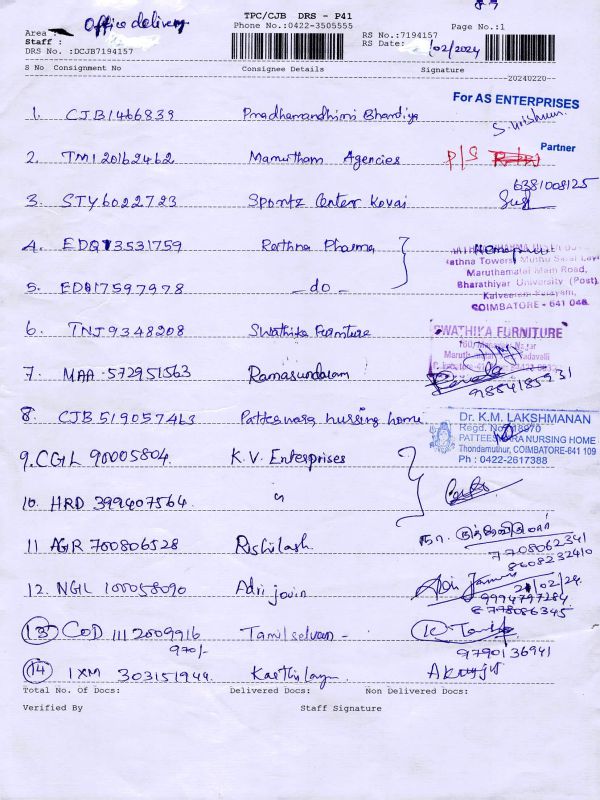 Office delivery
TPC/CJB DRS - P41
Area :
Phone No.:0422-3505555
Page No.:1
Staff :
RS No.:7194157
DRS No. :DCJB7194157
RS Date: /02/2024
S No Consignment No Consignee Details Signature
20240220--
For AS ENTERPRISES
1. CJB1466839
Partner
2. TM120162462 Marutham Agencies P/S
6381008125
3. STY6022723 Sports Center Kovai
4. EDQ13531759 Rathna Pharma
Rathna Towers, Muthu
Maruthamalai Main Road,
Bharathiyar University (Post)
5. EDQ17597978 - do -
COIMBATORE - 641 046
6. TNJ9348208 Swathika Furniture
SWATHIKA FURNITURE
7. MAA 572951563 Ramasundaram
9884185931
8. CJB 519057463 Patteswara nursing home
Dr. K.M. LAKSHMANAN
PATTEESWARA NURSING HOME
Thondamuthur, COIMBATORE-641 109
Ph : 0422-2617388
9. CGL 90005804. K.V. Enterprises
10. HRD 399407564 "
11 AGR 700806528 Rishilash
7708062341
8608232410
12. NGL 100058090 Adri jovin
21/02/24
9994797284
8778086345
13 COD 1112009916 Tamilselvan -
970/-
9790136941
14 IXM 303151944.
Total No. Of Docs: Delivered Docs: Non Delivered Docs:
Verified By Staff Signature